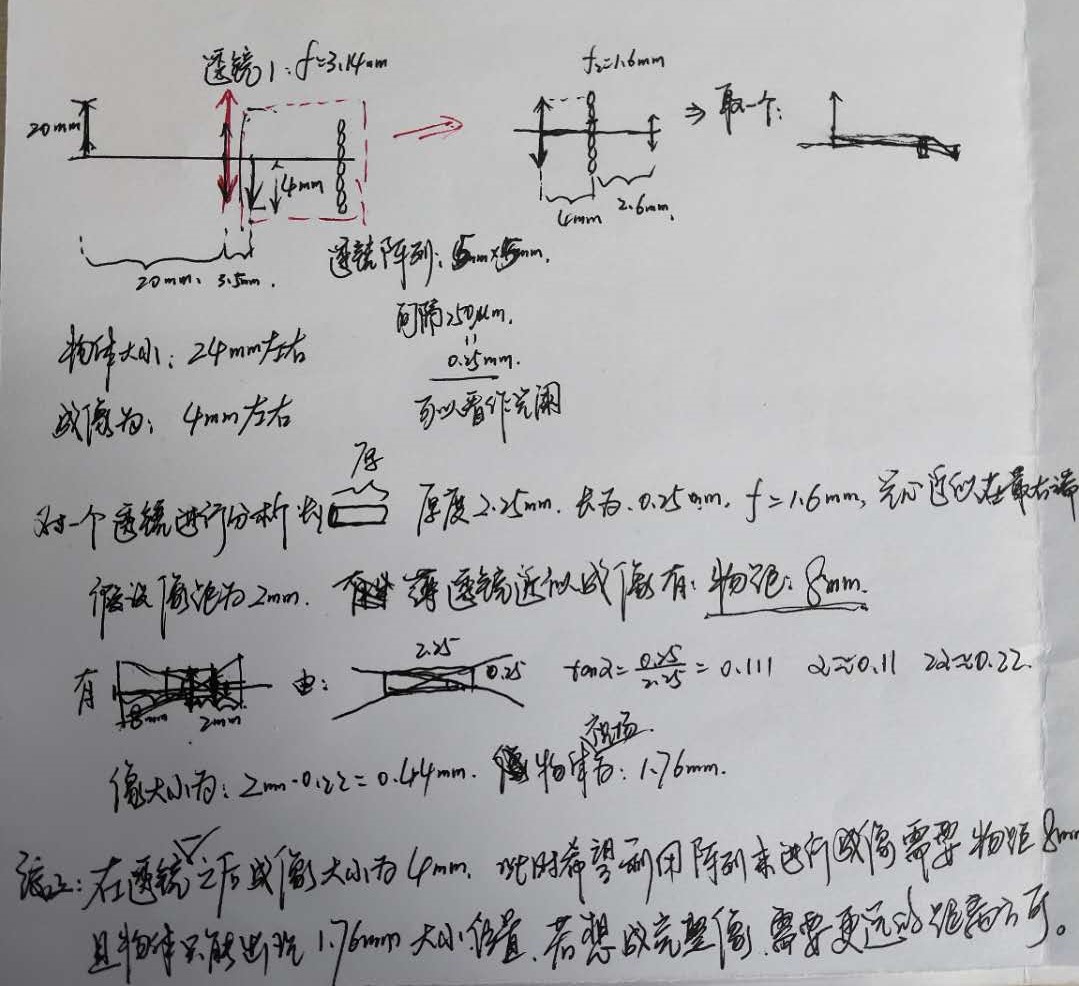 透镜1: f=3.14mm
f₂=1.6mm
20mm
4mm
⇒ 取一个:
4mm 2.6mm
20mm. 3.5mm.
透镜阵列: 5mm×5mm.
间隔250μm.
=
0.25mm.
可以看作光阑
物体大小: 24mm左右
成像为: 4mm左右
厚
对一个透镜进行分析 长 厚度2.25mm. 长为.0.25mm. f=1.6mm, 光心近似在最右端
假设像距为2mm. 薄透镜近似成像有: 物距: 8mm.
有 8mm 2mm 由: 2.25 0.25 tanα=0.25/2.25=0.111 α≈0.11 2α≈0.22.
视场
像大小为: 2mm·0.22=0.44mm. 物体为: 1.76mm.
在透镜之后成像大小为4mm. 此时希望利用阵列来进行成像需要物距8mm
且物体只能出现1.76mm大小位置. 若想成完整像, 需要更远的距离方可。